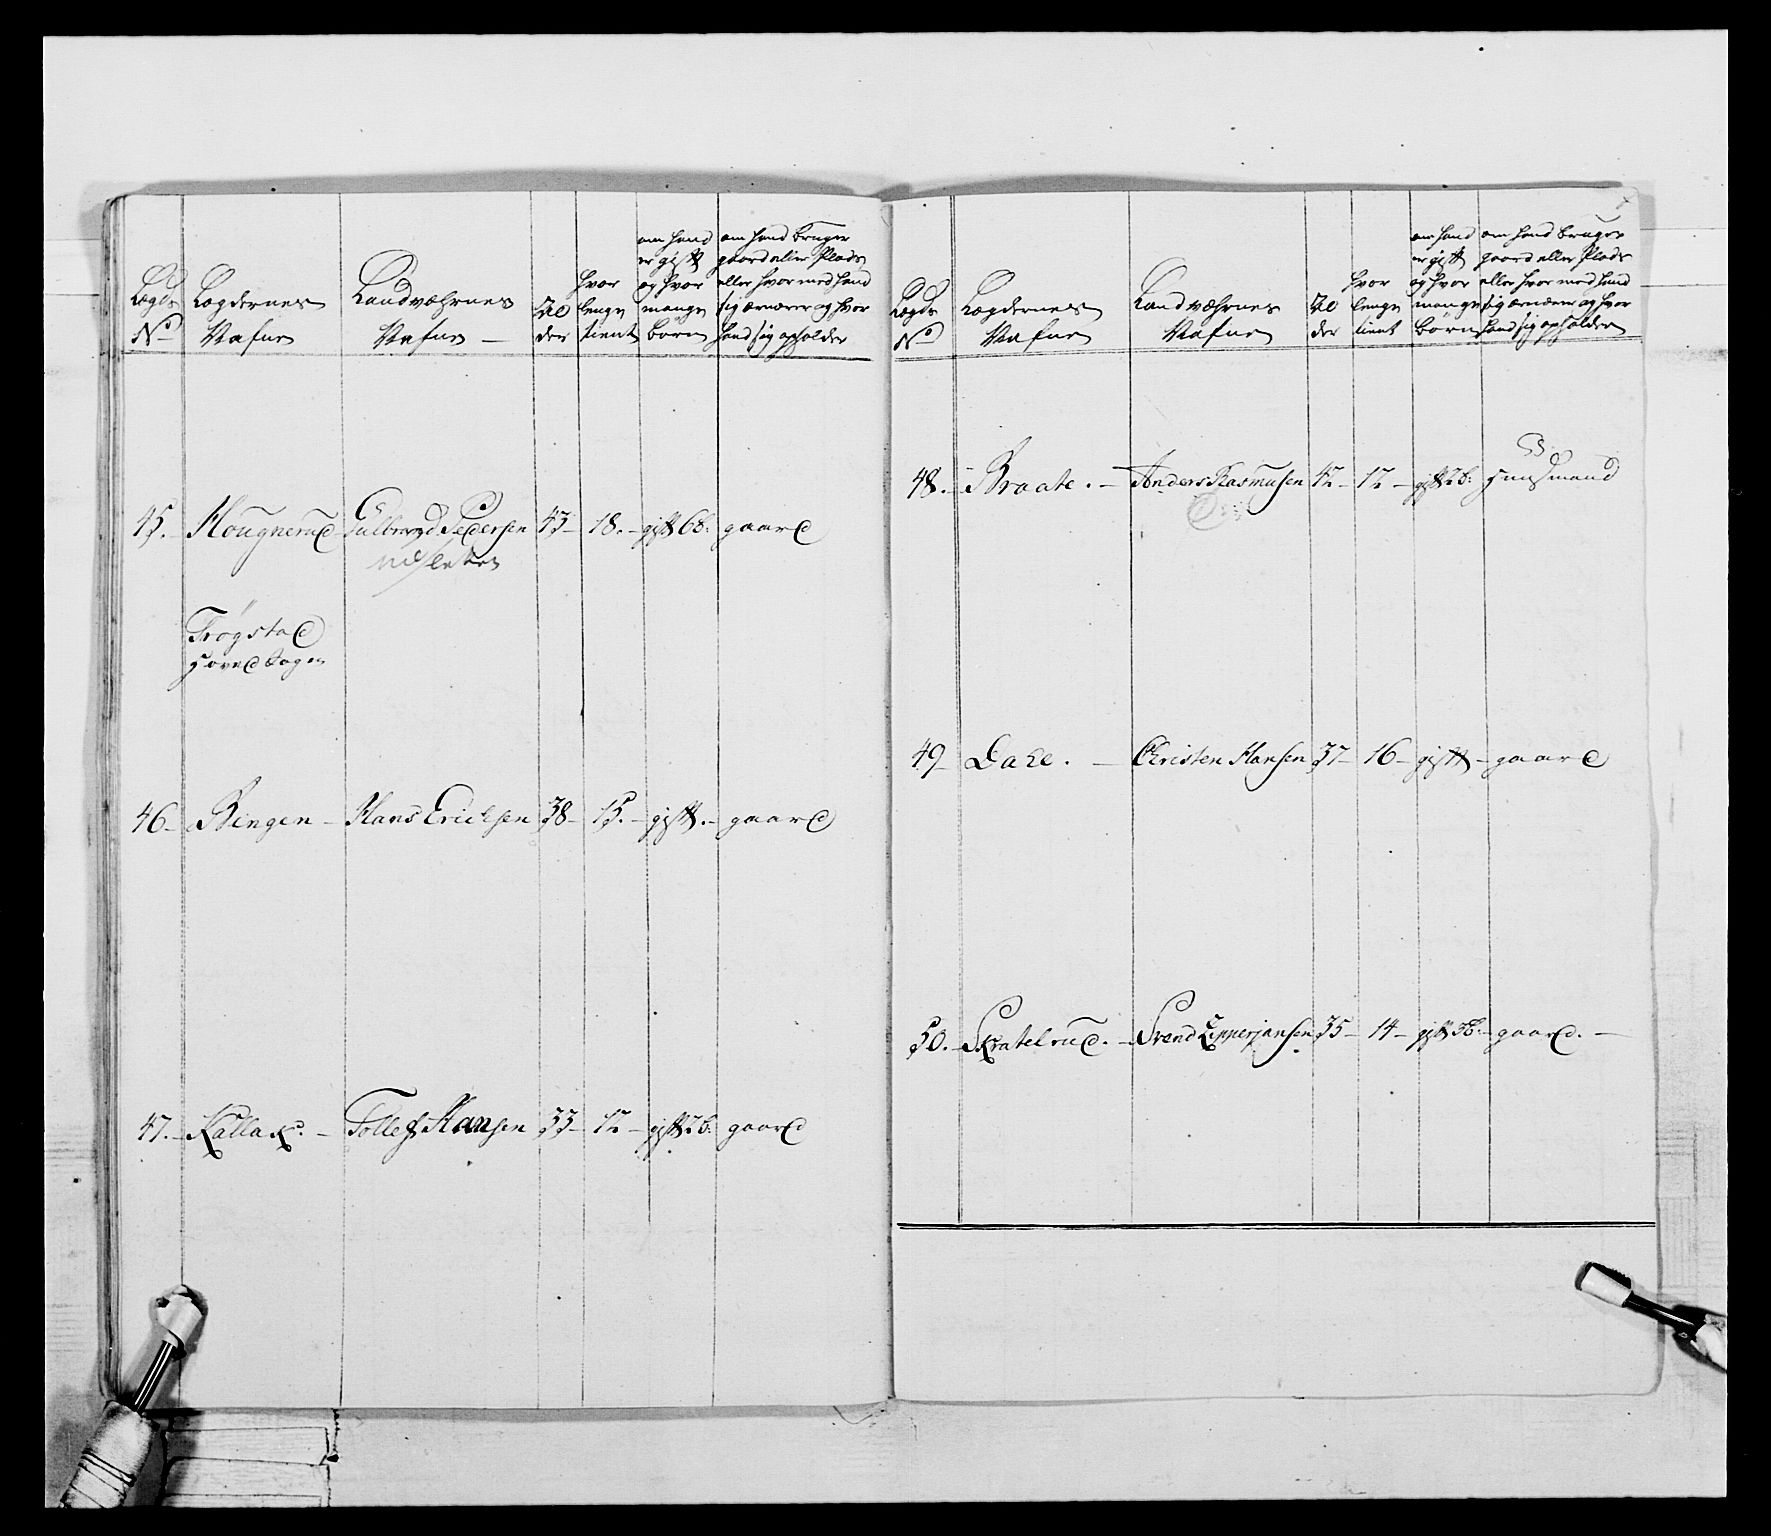 Lægds No
Lægdernes Nafne
Landværnes Nafne
Alder
hvor lenge tient
om hand er gift og hvor mange börn
om hand bruger gaard eller Plads eller hvor med hand sig ernærer og hvor hand sig opholder
45. Hougnerud Gulbrand Pedersen 43 - 18. - gift 6 b: gaard
udsletter
Trögstad
Hoved Sogn
46 - Bingen - Hans Erichsen 38 - 15. - gift. - gaard
47. - Kallax. - Tollef Hansen 33 - 12 - gift 2 b: gaard
Lægds No
Lægdernes Nafne
Landværnes Nafne
Alder
hvor lenge tient
om hand er gift og hvor mange Börn
om hand bruger gaard eller Plads eller hvor med hand sig ernærer og hvor hand sig opholder
48. - Braate. - Anders Rasmusen 42 - 12 - gift 2 b: Huusmand
49 - Dahl. - Christen Hansen 37 - 16 - gift - gaard
50. - Skratelrud. - Svend Epperjansen 35 - 14 - gift 3 b: - gaard. -